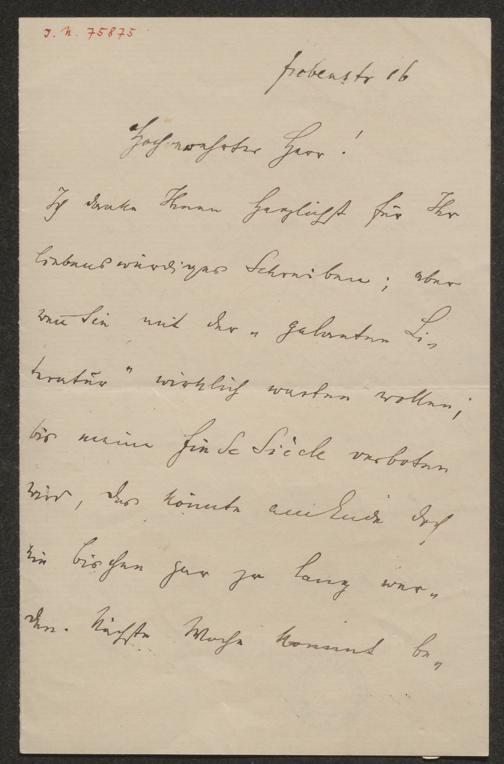 J. N. 75875
Frobenstr 16
Hochverehrter Herr!
Ich danke Ihnen herzlichst für Ihr
liebenswürdiges Schreiben; aber
wenn Sie mit der „galanten Li-
teratur" wirklich warten wollen,
bis meine Fin de Siècle verboten
wird, das könnte am Ende doch
ein bischen gar zu lang wer-
den. Nächste Woche kommt be-